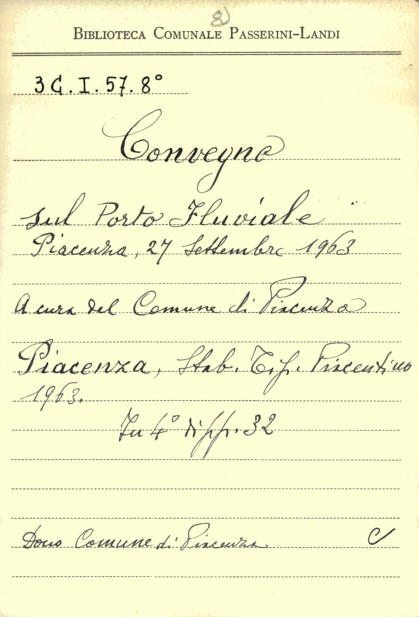 8)
BIBLIOTECA COMUNALE PASSERINI-LANDI
3G.I.57.8°
Convegno
sul Porto Fluviale
Piacenza, 27 Settembre 1963
A cura del Comune di Piacenza
Piacenza, Stab. Tip. Piacentino
1963.
In 4° di pp. 32
Dono Comune di Piacenza